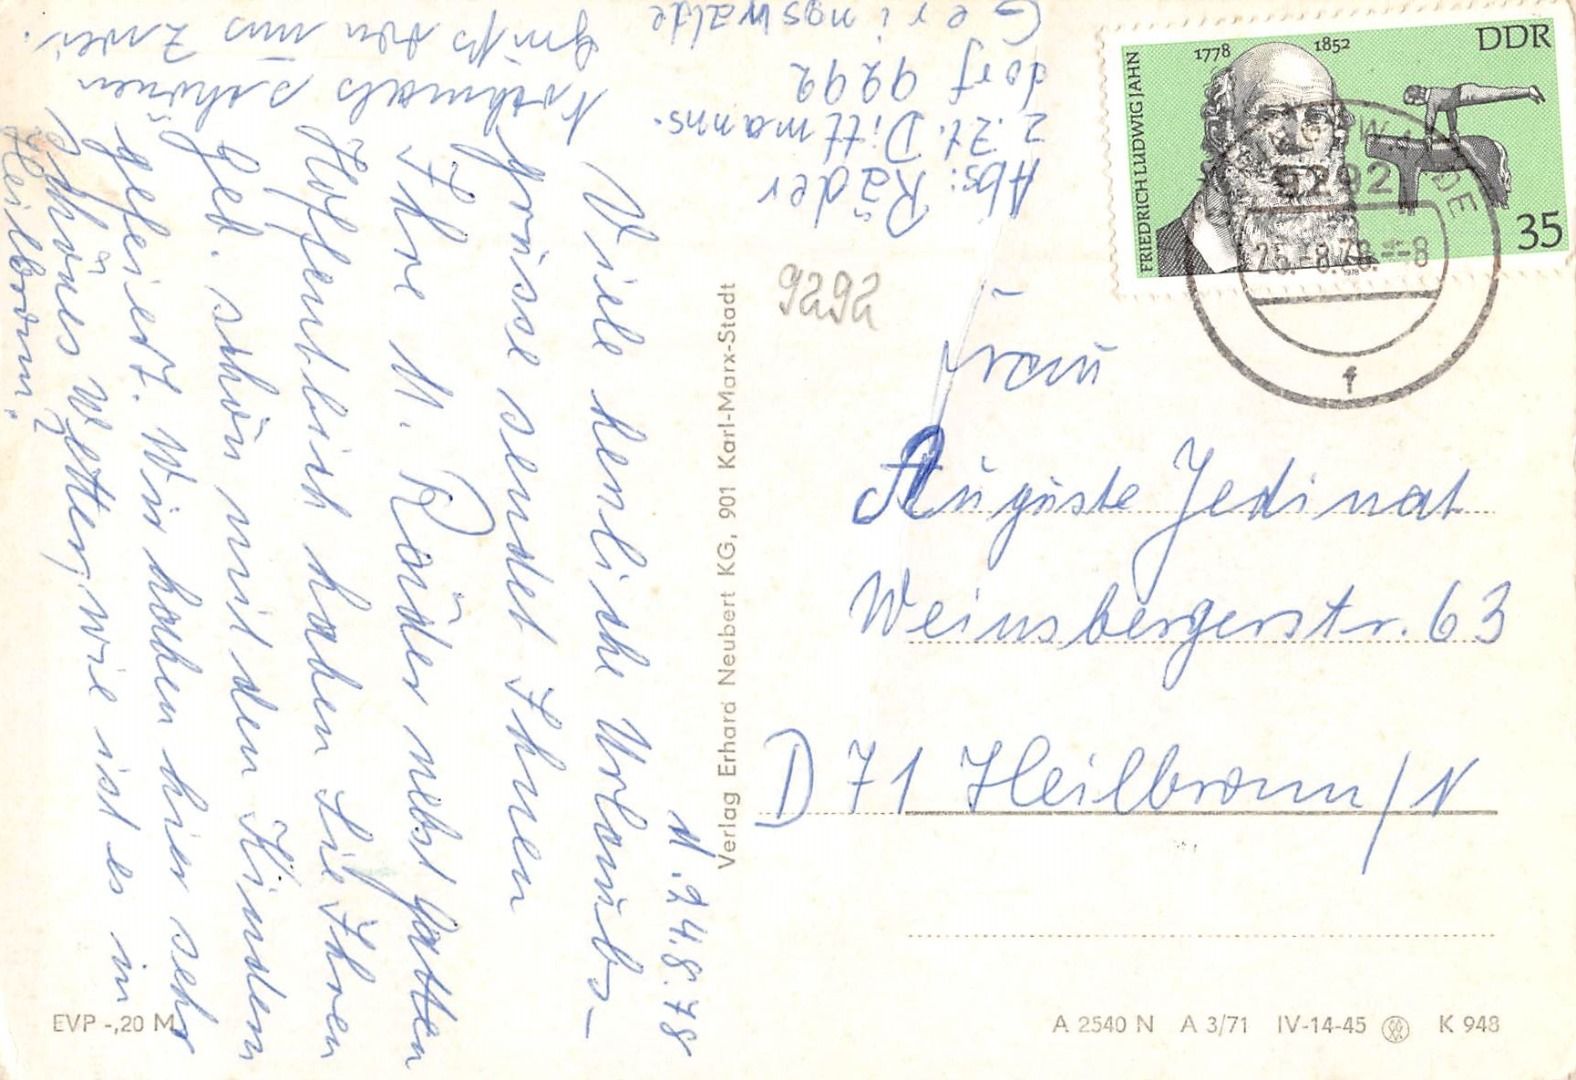 N. 24.8.78
Viele herzliche Urlaubs-
grüsse sendet Ihnen
Ihre M. Räder nebst Gatten
Hoffentlich haben Sie Ihren
Geb. schön mit den Kindern
gefeiert. Wir haben hier sehr
schönes Wetter, wie ist es in
Heilbronn?
Nochmals schönen
Gruß von uns Zwei.
Abs: Räder
z.Zt. Dittmanns-
dorf 9292
Geringswalde
DDR
1778
1852
FRIEDRICH LUDWIG JAHN
35
1978
9292
25.-8.78.--8
f
9292
Frau
Auguste Jedinat
Weinsbergerstr. 63
D 71 Heilbronn/N
Verlag Erhard Neubert KG, 901 Karl-Marx-Stadt
EVP -,20 M
A 2540 N A 3/71 IV-14-45 K 948